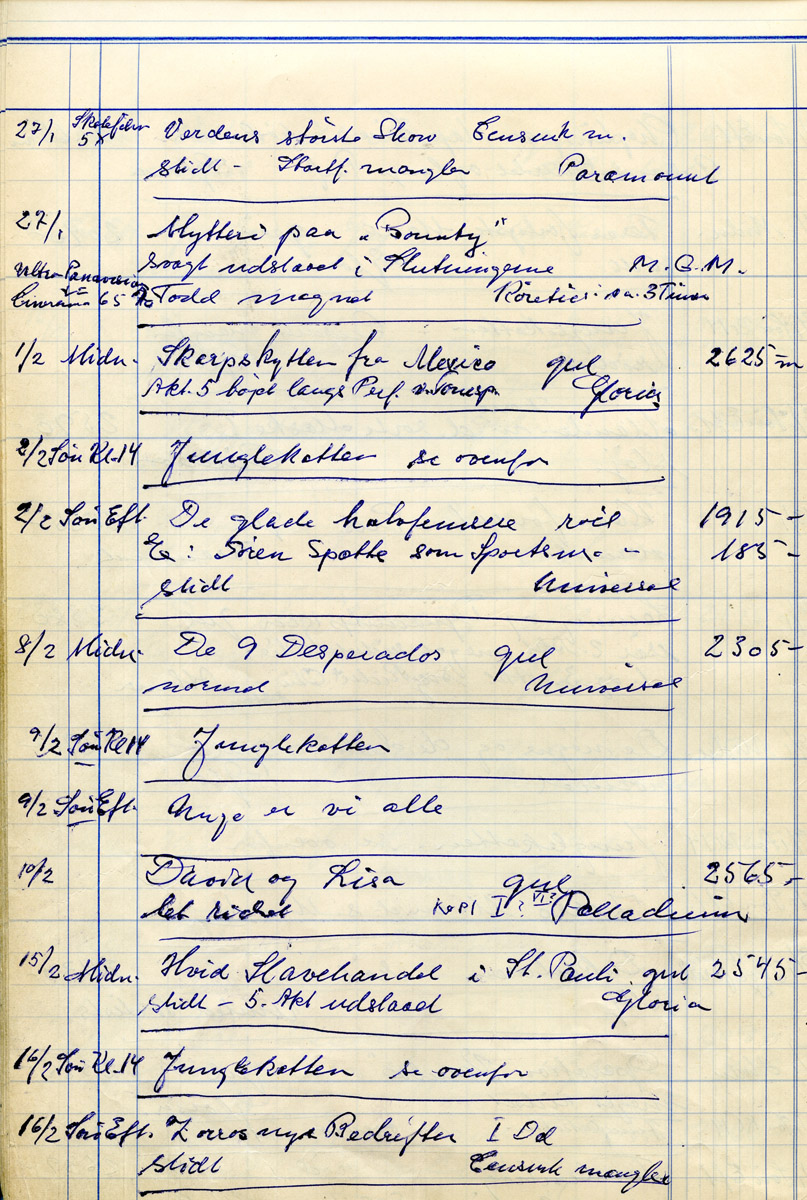 27/1 5x Verdens störste Show Censurk m.
slidt - Startf. mangler Paramount
27/1 Mytteri paa "Bounty"
Ultra Panavision svagt udslaaed i Slutningerne M.G.M.
65 Todd magnet Köretid: ca. 3 Timer
1/2 Midn. Skarpskytten fra Mexico gul 2625 m
Akt. 5 böjet langs Perf. Gloria
2/2 Sön Kl. 14 Junglekatten se ovenfor
2/2 Sön Eft. De glade halofemmere röd 1915 -
Ex: Sören Spætte som Sportsm. - 185 -
slidt Universal
8/2 Midn. De 9 Desperados gul 2305 -
normal Universal
9/2 Sön Kl 14 Junglekatten
9/2 Sön Eft. Unge er vi alle
10/2 David og Lisa gul 2565,-
let ridset Kopi I? VI? Palladium
15/2 Midn. Hvid Slavehandel i St. Pauli gul 2545 -
slidt - 5. Akt udslaaed Gloria
16/2 Sön Kl. 14 Junglekatten se ovenfor
16/2 Sön Eft. Zorros nye Bedrifter I Del
slidt Censurk mangler